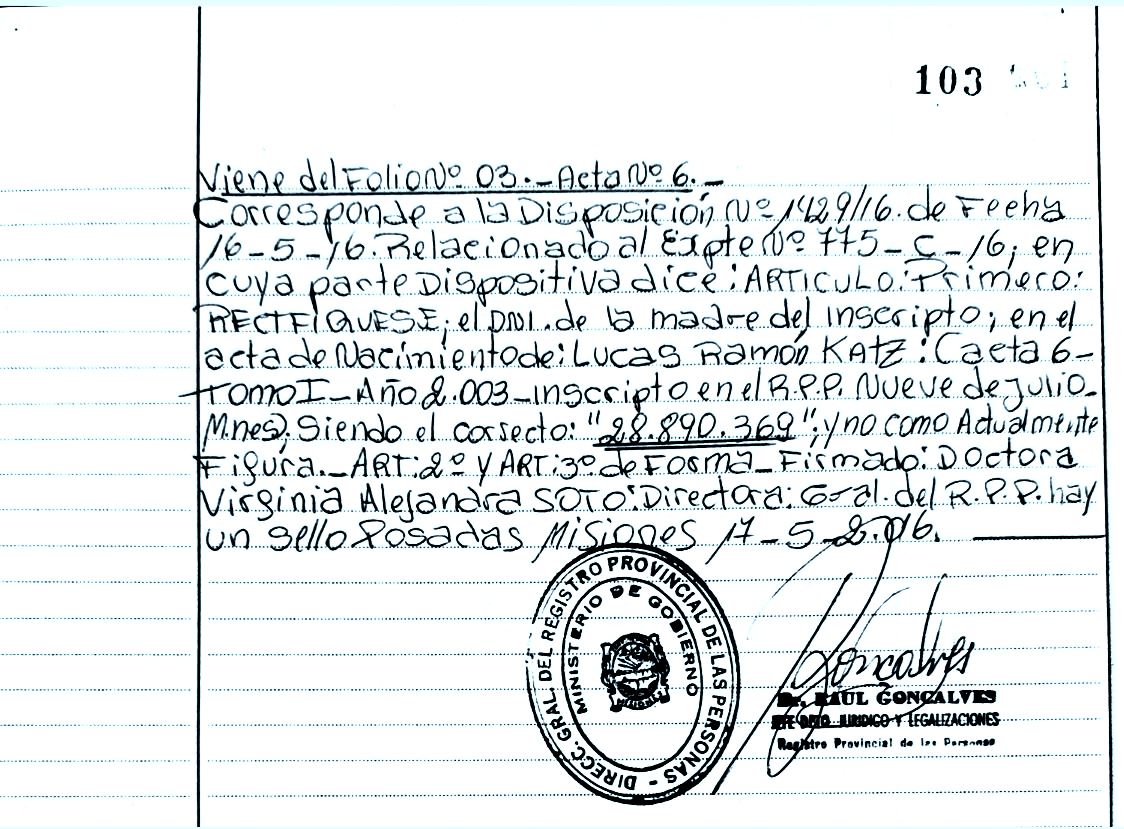 103
Viene del Folio Nº 03.- Acta Nº 6.-
Corresponde a la Disposición Nº 1429/16. de Fecha
16-5-16. Relacionado al Expte Nº 775-C-16; en
cuya parte Dispositiva dice: ARTICULO: Primero:
RECTFIQUESE; el DNI. de la madre del inscripto; en el
acta de Nacimiento de: LUCAS RAMÓN KATZ: (acta 6-
TOMO I- Año 2.003-inscripto en el R.P.P. Nueve de Julio-
Mnes). Siendo el correcto: "28.890.369"; y no como Actualmente
Figura.- ART: 2º Y ART: 3º de Forma- Firmado: Doctora
Virginia Alejandra SOTO: Directora: Gral. del R.P.P. hay
un sello Posadas Misiones 17-5-2.016.
DIRECC. GRAL. DEL REGISTRO PROVINCIAL DE LAS PERSONAS -
MINISTERIO DE GOBIERNO
MISIONES
Goncalves
Dr. RAUL GONCALVES
JEFE DPTO. JURIDICO Y LEGALIZACIONES
Registro Provincial de las Personas